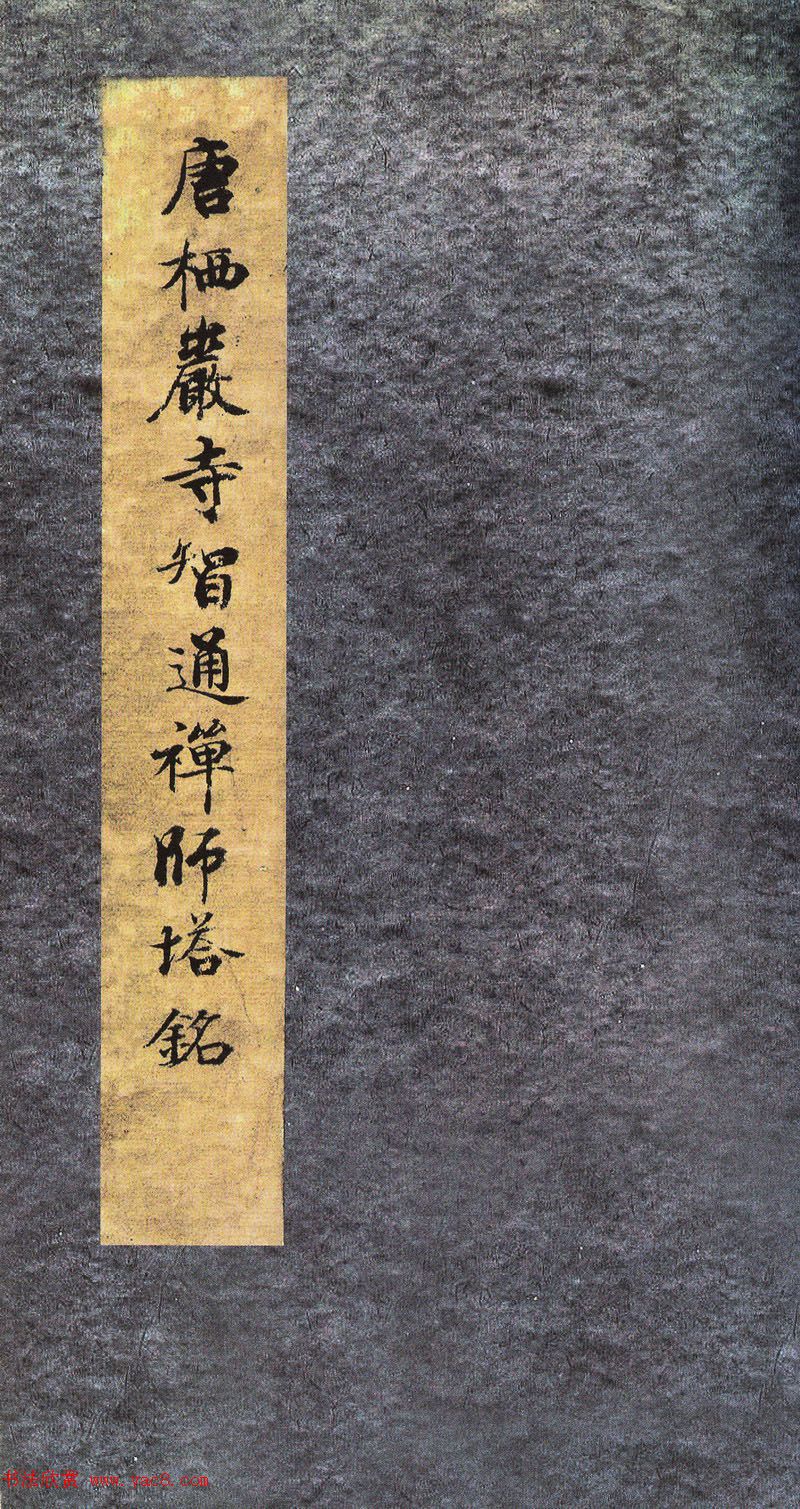 唐栖巖寺智通禪師塔銘
书法欣赏 www.yac8.com